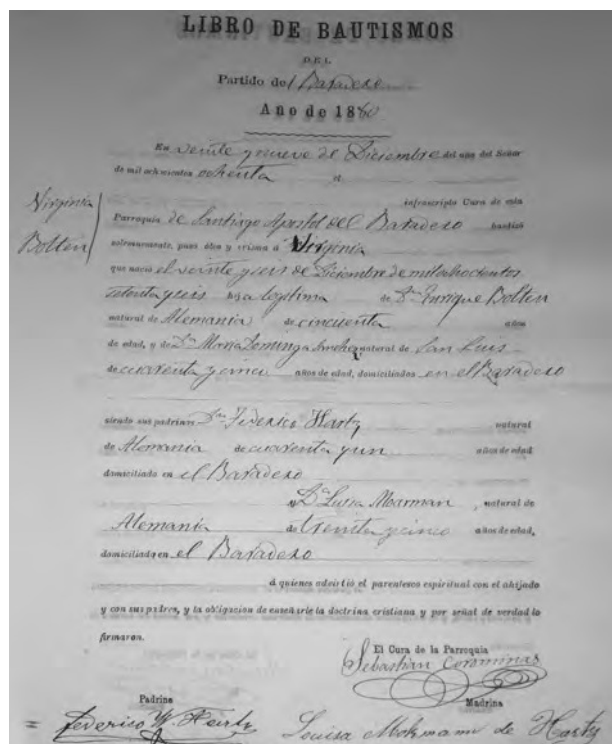 LIBRO DE BAUTISMOS
DEL
Partido del Baradero
Año de 1880
En veinte y nueve de Diciembre del año del Señor
de mil ochocientos ochenta el
infrascripto Cura de esta
Virginia
Bolten
Parroquia de Santiago Apostol del Baradero bautizó
solemnemente, puso óleo y crisma á Virginia
que nació el veinte y seis de Diciembre de mil ochocientos
setenta y seis hija legitima de Dn Enrique Bolten
natural de Alemania de cincuenta años
de edad, y de Da Maria Dominga Sanchez natural de San Luis
de cuarenta y cinco años de edad, domiciliados en el Baradero
siendo sus padrinos Dn Federico Hartz natural
de Alemania de cuarenta y un años de edad
domiciliado en el Baradero
y Da Luisa Moarman, natural de
Alemania de treinta y cinco años de edad,
domiciliada en el Baradero
á quienes advirtió el parentesco espiritual con el ahijado
y con sus padres, y la obligacion de enseñarle la doctrina cristiana y por señal de verdad lo
firmaron.
El Cura de la Parroquia
Sebastian Comminas
Padrino
Madrina
Federico W. Hartz
Louisa de Hartz